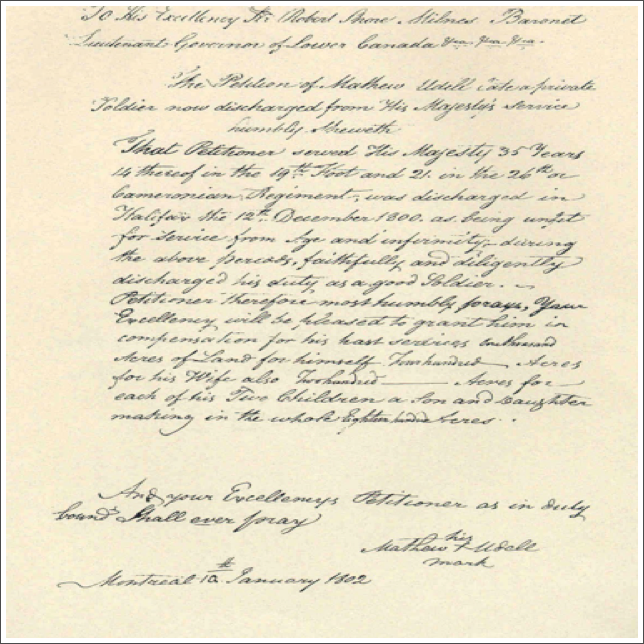 To His Excellency Sir Robert Shore Milnes Baronet
Lieutenant Governor of Lower Canada &ca. &ca. &ca.
The Petition of Mathew Udell late a private
Soldier now discharged from His Majesty's Service
humbly Sheweth
That Petitioner served His Majesty 35 Years
14 thereof in the 19th Foot and 21. in the 26th or
Cameronian Regiment, was discharged in
Halifax the 12th December 1800. as being unfit
for Service from Age and infirmity, during
the above periods, faithfully and diligently
discharged his duty as a good Soldier.
Petitioner therefore most humbly prays, Your
Excellency will be pleased to grant him in
compensation for his past services
Acres of Land for himself Two hundred Acres
for his Wife also Two hundred Acres for
each of his Two Children a Son and Daughter
making in the whole Eighteen hundred Acres.
And your Excellency's Petitioner as in duty
bound Shall ever pray
his
Mathew + Udell
mark
Montreal January 1802